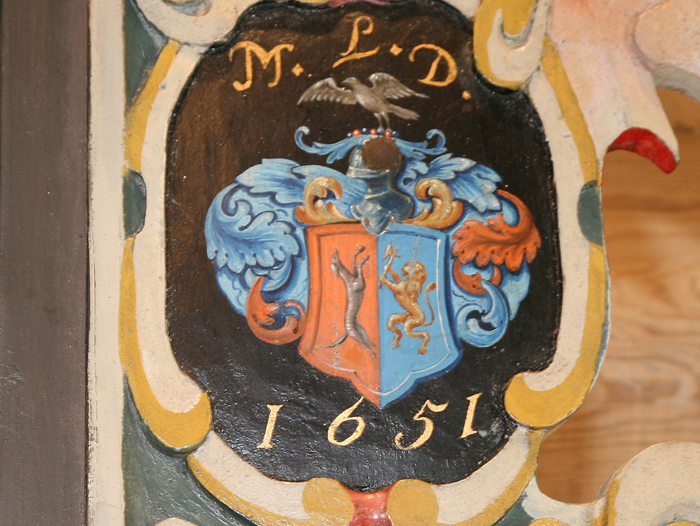 M. L. D.
1651